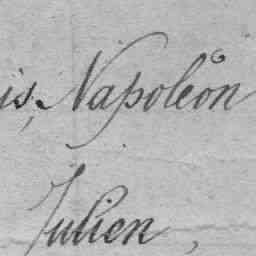 is, Napoléon
Julien,